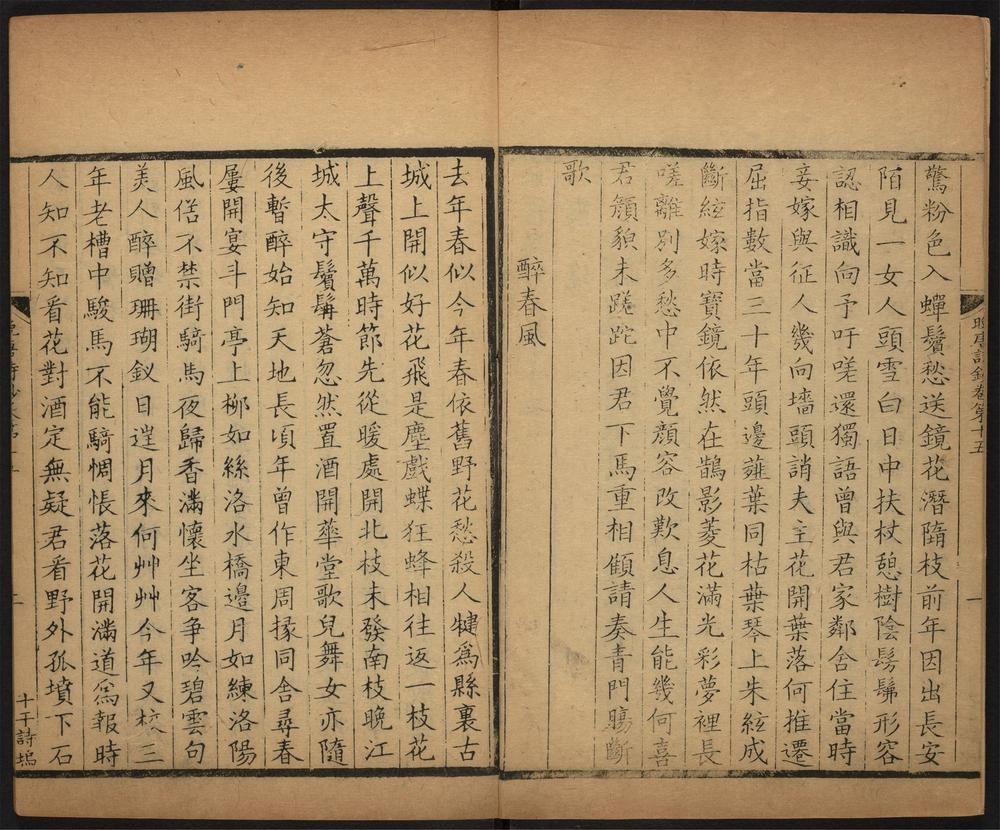 驚粉色入蟬鬢愁送鏡花潛隋枝前年因出長安
陌見一女人頭雪白日中扶杖憩樹陰髣髴形容
認相識向予吁嗟還獨語曾與君家鄰舍住當時
妾嫁與征人幾向墻頭誚夫主花開葉落何推遷
屈指數當三十年頭邊薤葉同枯葉琴上朱絃成
斷絃嫁時寶鏡依然在鵲影菱花滿光彩夢裡長
嗟離別多愁中不覺顏容改歎息人生能幾何喜
君顏貌未蹉跎因君下馬重相顧請奏青門腸斷
歌
醉春風
去年春似今年春依舊野花愁殺人犍爲縣裏古
城上開似好花飛是塵戲蝶狂蜂相往返一枝花
上聲千萬時節先從暖處開北枝未發南枝晚江
城太守鬢髯蒼忽然置酒開華堂歌兒舞女亦隨
後暫醉始知天地長頃年曾作東周掾同舍尋春
屢開宴斗門亭上柳如絲洛水橋邊月如練洛陽
風俗不禁街騎馬夜歸香滿懷坐客爭吟碧雲句
美人醉贈珊瑚釵日逞月來何艸艸今年又校三
年老槽中駿馬不能騎惆悵落花開滿道爲報時
人知不知看花對酒定無疑君看野外孤墳下石
晚唐詩鈔卷第十五
一
十干詩塢